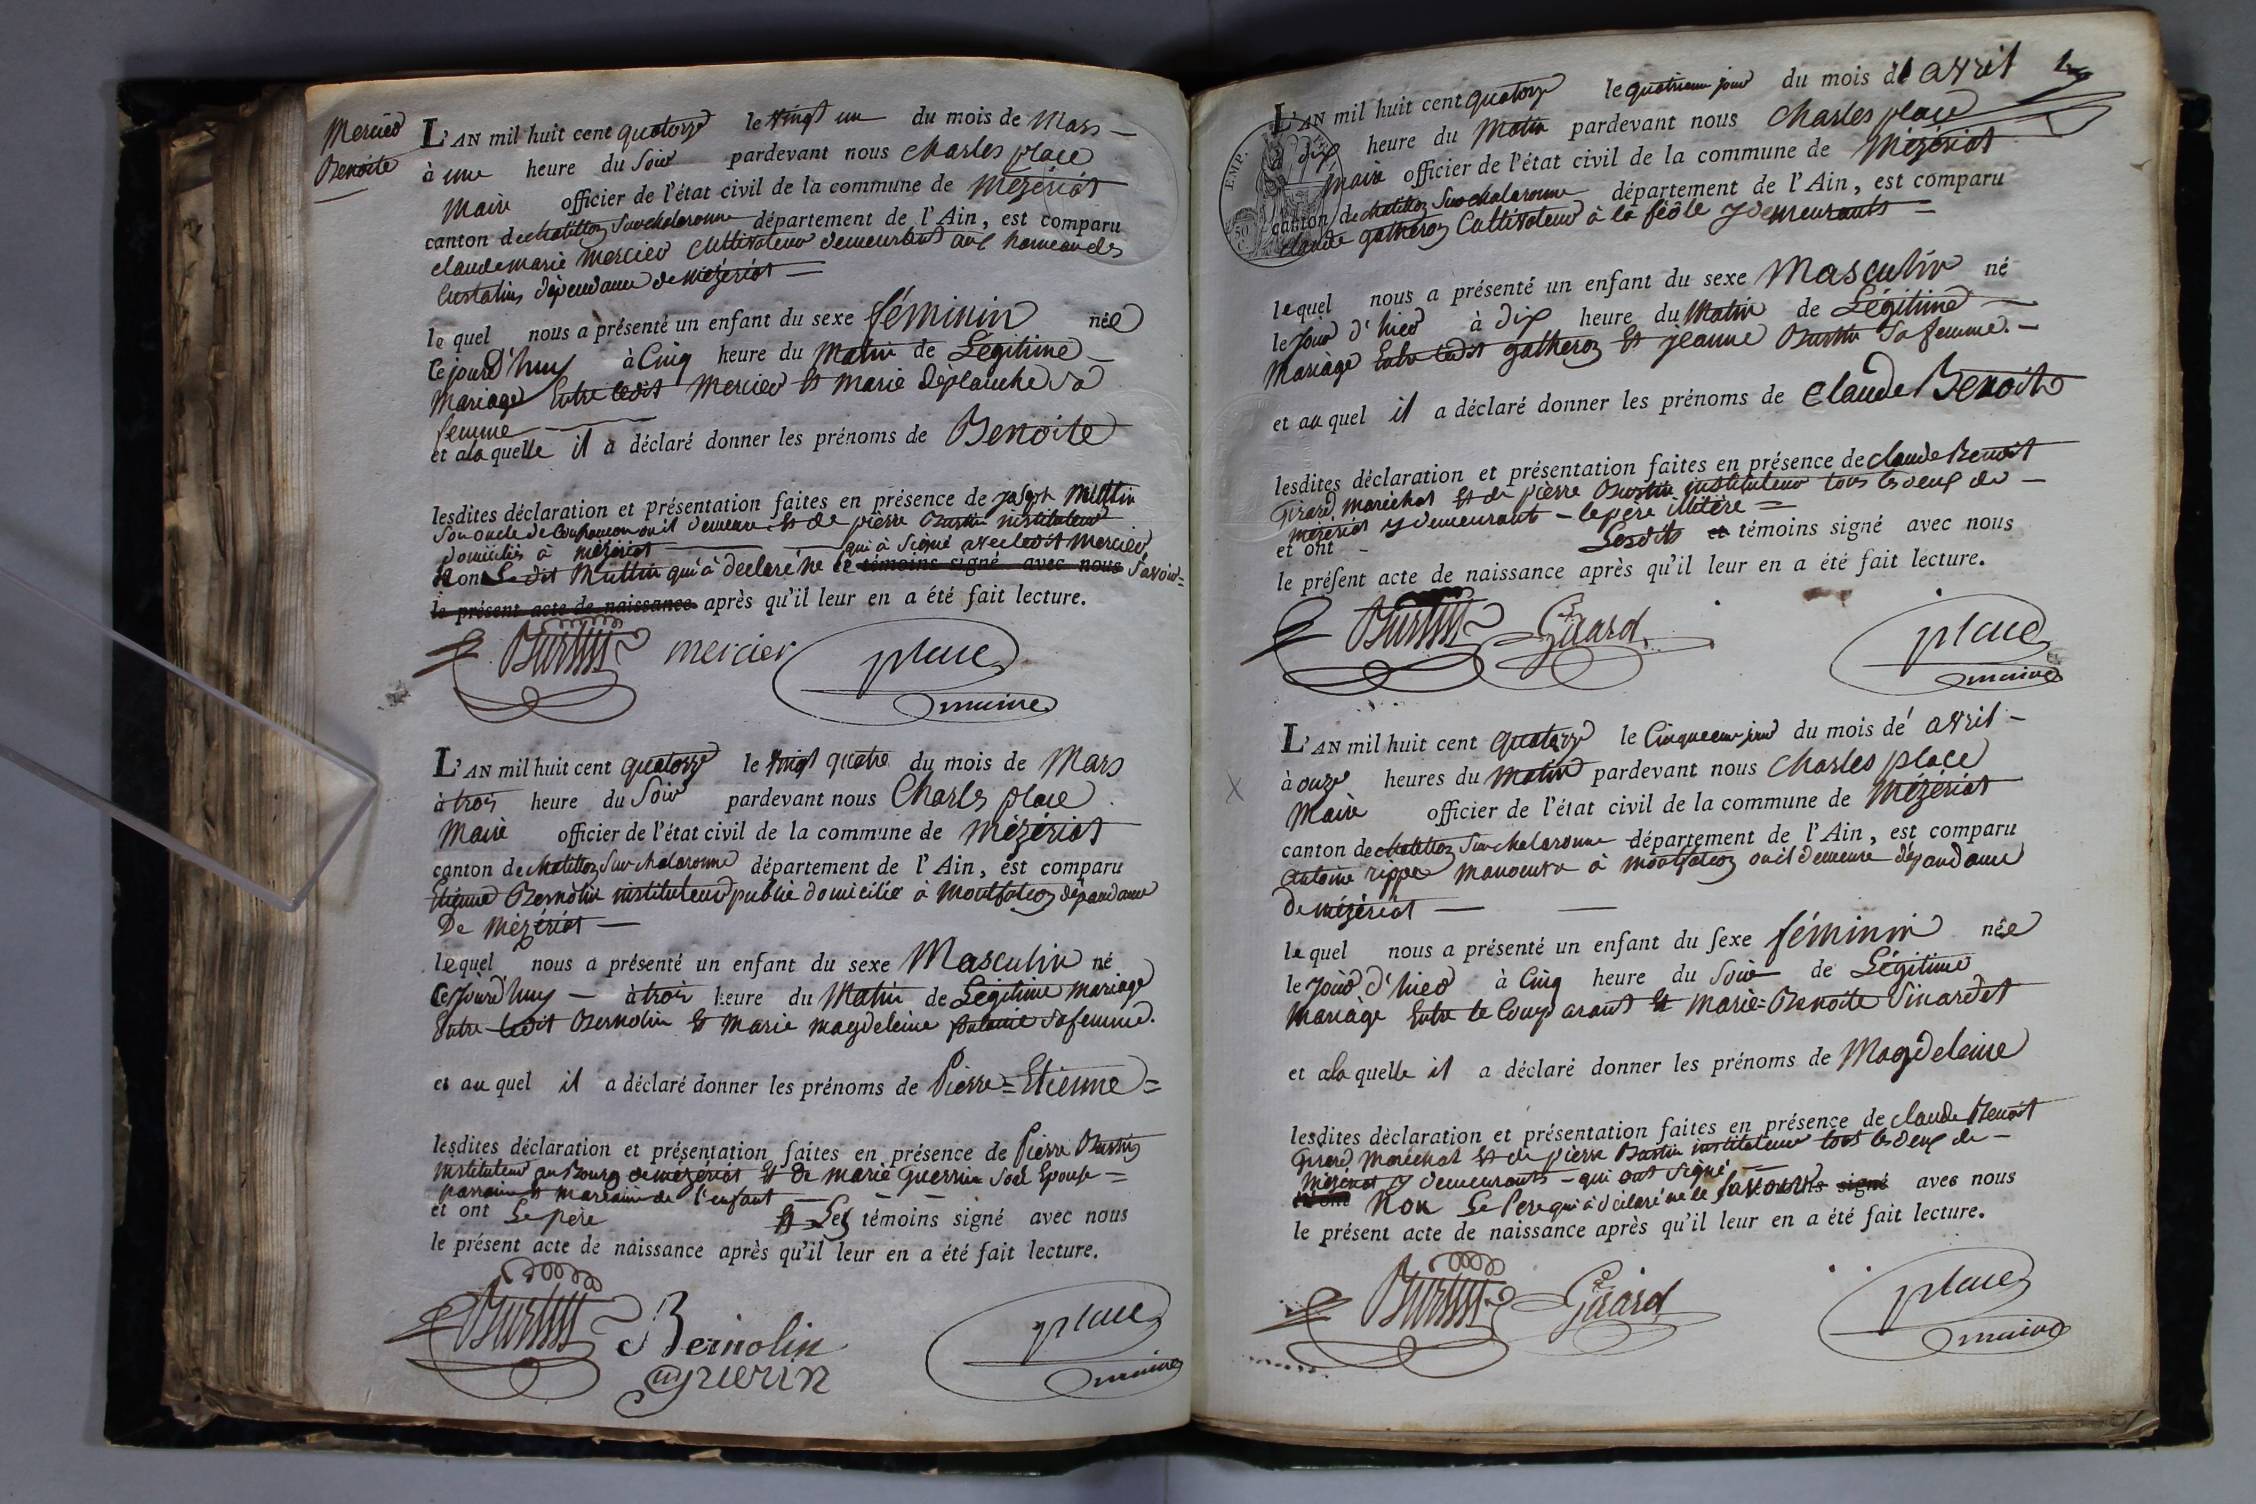 Mercier
Benoite
L'AN mil huit cent quatorze le vingt un du mois de Mars
à une heure du Soir pardevant nous Charles place
Maire officier de l'état civil de la commune de Mézériat
canton de chatillon Sur chalaronne département de l'Ain, est comparu
claude marie Mercier Cultivateur demeurant aux hameau des
dépendance de mézériat
le quel nous a présenté un enfant du sexe féminin née
Ce jourd'huy à Cinq heure du Matin de Légitime
Mariage Entre ledit Mercier Et Marie déplanche sa
femme
et a la quelle il a déclaré donner les prénoms de Benoite
lesdites déclaration et présentation faites en présence de joseph Muttin
Son oncle de ou il demeure Et de pierre Burtin instituteur
domicilié à mézériat qui à Signé avec ledit Mercier
Et non Le dit Muttin qui à déclaré ne le témoins signé avec nous Savoir
le présent acte de naissance après qu'il leur en a été fait lecture.
Burtin mercier place
maire
L'AN mil huit cent quatorze le vingt quatre du mois de Mars
à trois heure du Soir pardevant nous Charles place
Maire officier de l'état civil de la commune de Mézériat
canton de chatillon Sur chalaronne département de l'Ain, est comparu
Etienne Bernolin instituteur public domicilié à Montfalcon dépandance
De Mézériat
le quel nous a présenté un enfant du sexe Masculin né
Ce jourd'huy à trois heure du Matin de Légitime mariage
Entre ledit Bernolin Et Marie magdeleine sa femme.
et au quel il a déclaré donner les prénoms de Pierre = Etienne =
lesdites déclaration et présentation faites en présence de Pierre Burtin
instituteur au Bourg de mézériat Et de marie Guerrin Son Epouse =
parrain Et marraine de l'enfant
et ont Le père Et Les témoins signé avec nous
le présent acte de naissance après qu'il leur en a été fait lecture.
Burtin Bernolin place
guerin maire
L'AN mil huit cent quatorze le quatrieme jour du mois de avril
à dix heure du Matin pardevant nous Charles place
Maire officier de l'état civil de la commune de Mézériat
canton de chatillon Sur chalaronne département de l'Ain, est comparu
Claude gatheron Cultivateur à la féole y demeurants =
EMP.
50 C.
le quel nous a présenté un enfant du sexe Masculin né
le Jour d'hier à dix heure du Matin de Légitime
Mariage Entre ledit gatheron Et jeanne Burtin Sa femme.
et au quel il a déclaré donner les prénoms de Claude Benoit
lesdites déclaration et présentation faites en présence de claude Benoit
Girard Maréchal Et de pierre Burtin instituteur tous les deux de
Mézériat y demeurant - le père illitéré =
et ont Lesdits témoins signé avec nous
le présent acte de naissance après qu'il leur en a été fait lecture.
Burtin Girard place
maire
L'AN mil huit cent quatorze le Cinquieme jour du mois de avril
à onze heures du Matin pardevant nous Charles place
Maire officier de l'état civil de la commune de Mézériat
canton de chatillon Sur chalaronne département de l'Ain, est comparu
antoine rippe manoeuvre à Montfalcon ou il demeure dépandance
De mézériat
le quel nous a présenté un enfant du sexe féminin née
le Jour d'hier à Cinq heure du Soir de Légitime
Mariage Entre le Comparant Et Marie = Benoite Vinardet
et a la quelle il a déclaré donner les prénoms de Magdeleine
lesdites déclaration et présentation faites en présence de claude Benoit
Girard Maréchal Et de pierre Burtin instituteur tous les deux de
Mézériat y demeurants - qui ont signé
et ont Non Le Pere qui à déclaré ne le Savoir témoins signé avec nous
le présent acte de naissance après qu'il leur en a été fait lecture.
Burtin Girard place
maire